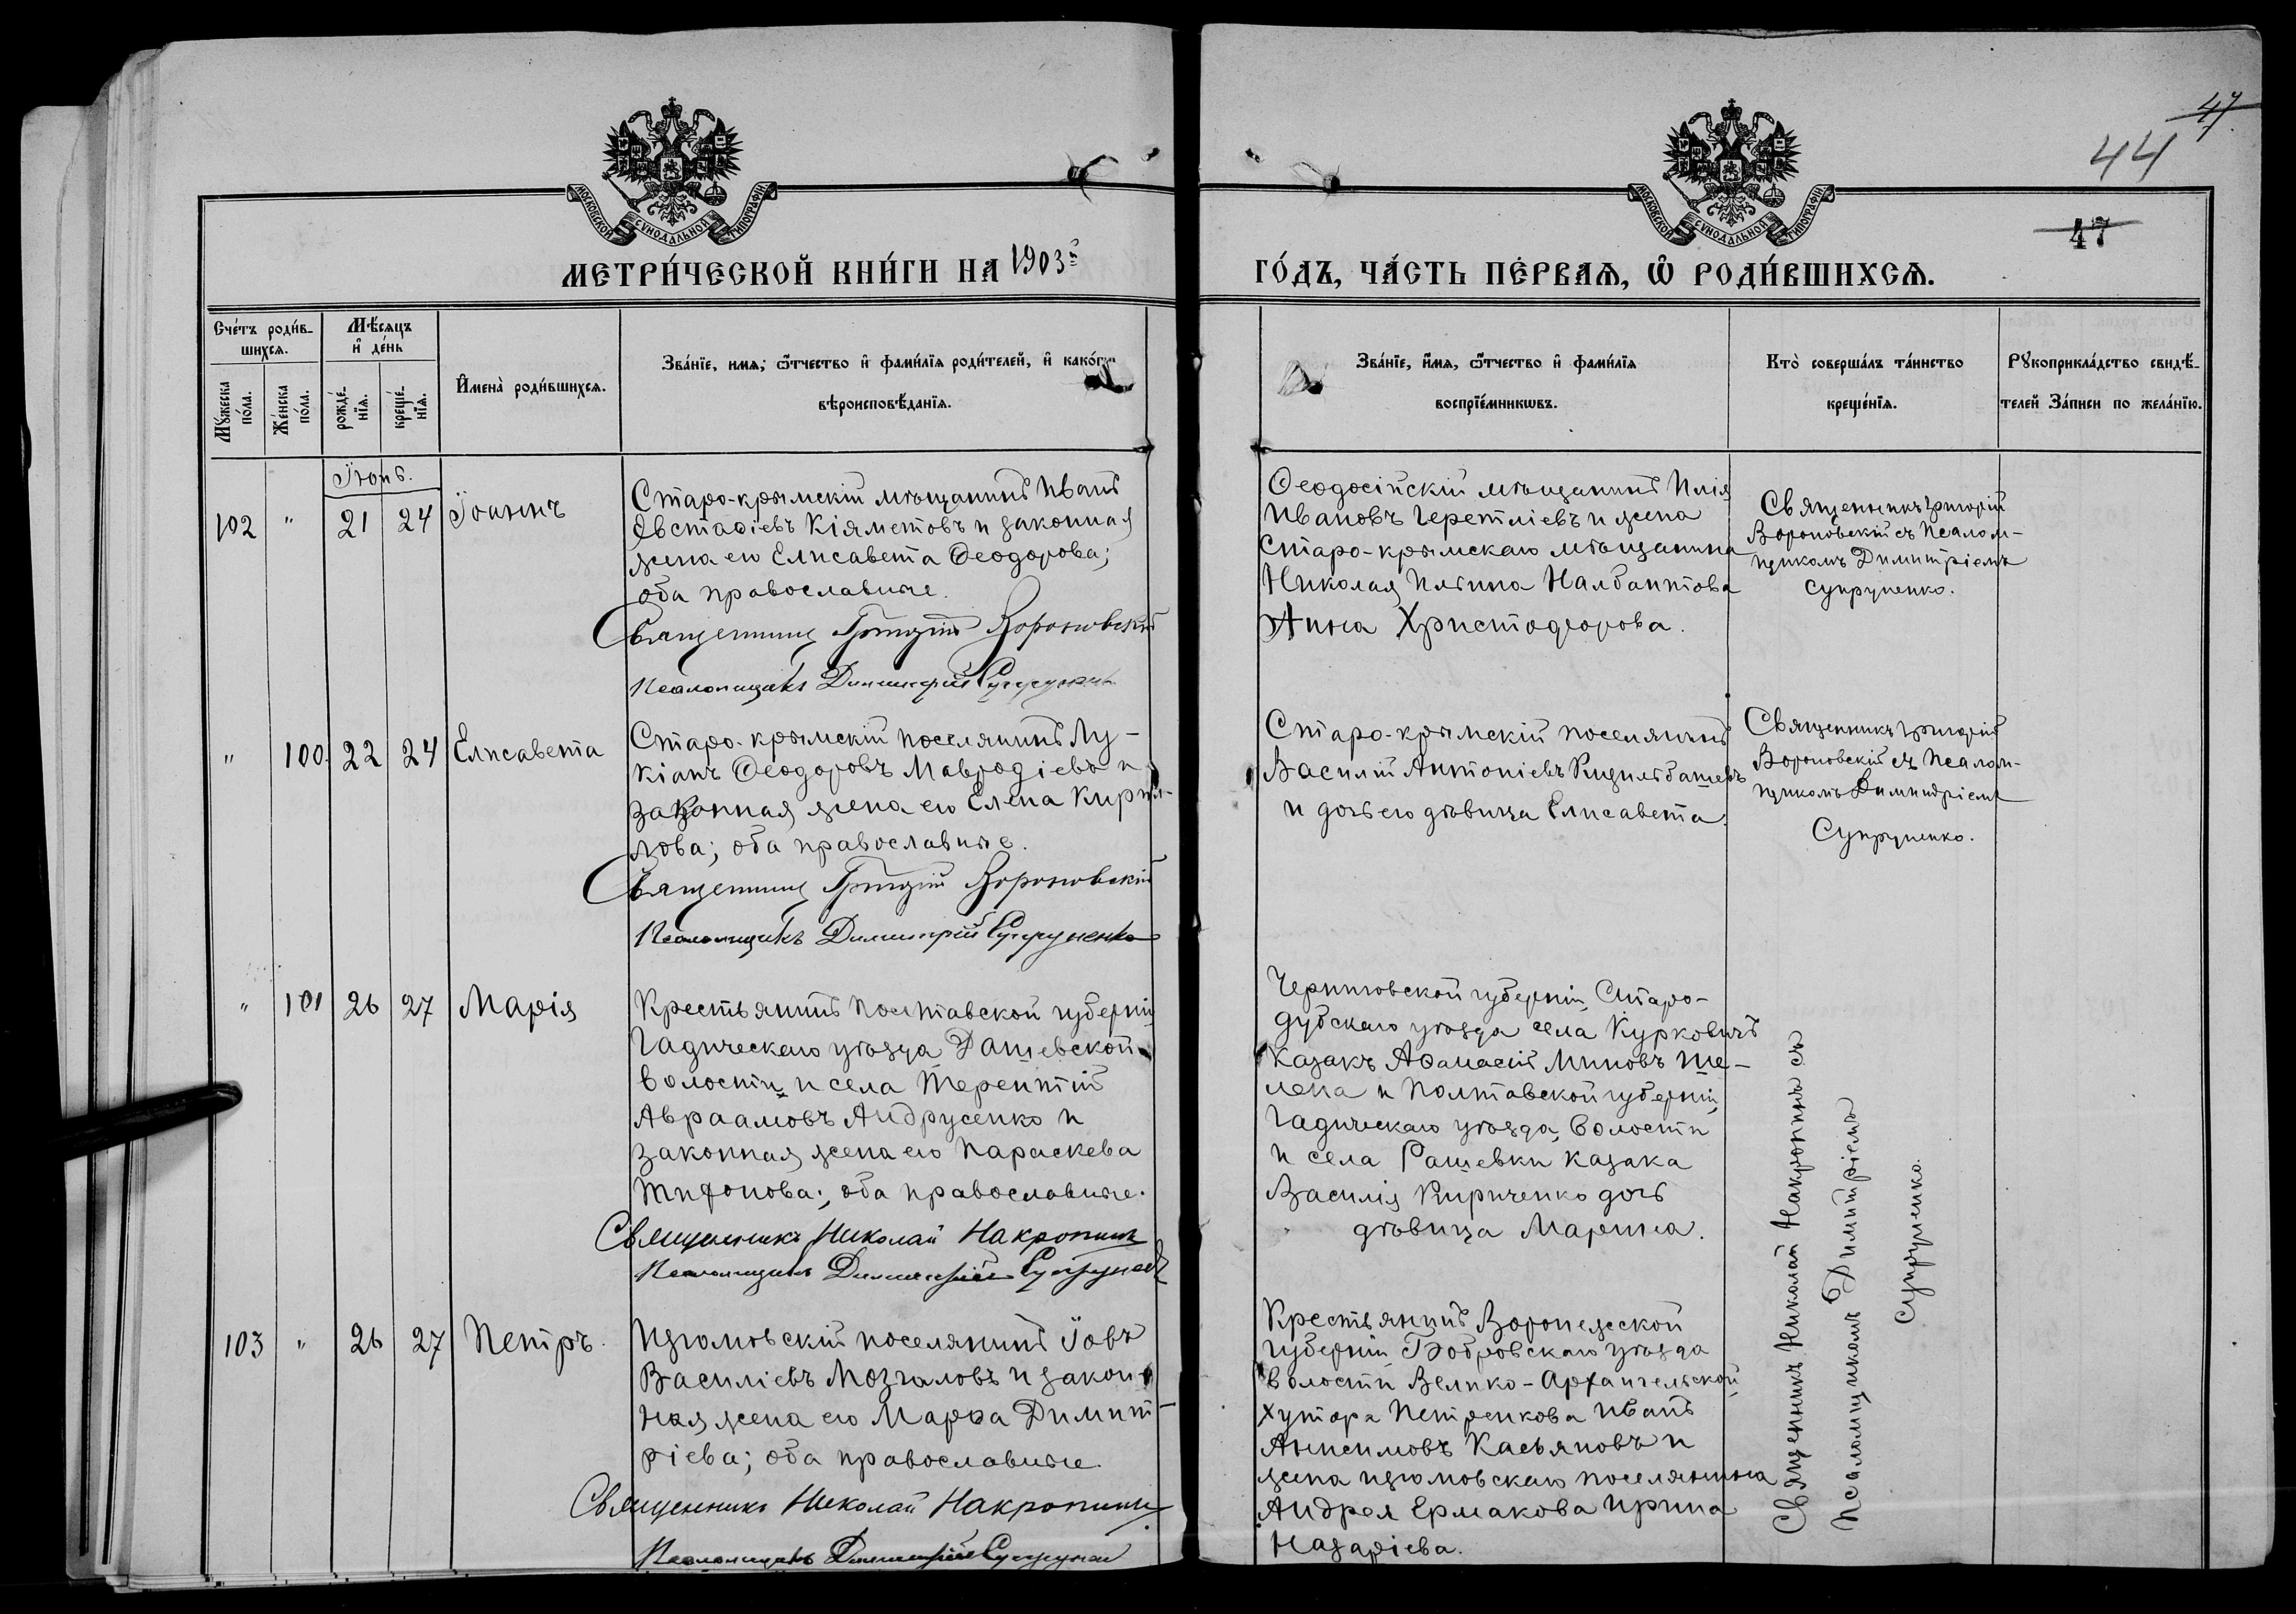 47
44
47
МОСКОВСКОЙ СѴНОДАЛЬНОЙ ТИПОГРАФІИ
МОСКОВСКОЙ СѴНОДАЛЬНОЙ ТИПОГРАФІИ
МЕТРИ́ЧЕСКОЙ КНИ́ГИ НА 1903й
ГО́ДЪ, ЧА́СТЬ ПЕ́РВАѦ, Ѡ҆ РОДИ́ВШИХСѦ.
Сче́тъ роди́в-
шихсѧ.
Мѣ́сѧцъ
и҆ де́нь
Мꙋ́жеска
по́ла.
Же́нска
по́ла.
рожде́-
нїѧ.
креще́-
нїѧ.
И҆мена̀ роди́вшихсѧ.
Зва́нїе, имѧ; ѻ҆́тчество и҆ фами́лїѧ роди́телей, и҆ како́гѡ
вѣроисповѣ́данїѧ.
Зва́нїе, и҆́мѧ, ѻ҆́тчество и҆ фами́лїѧ
воспрїе́мникѡвъ.
Кто̀ соверша́лъ та́инство
креще́нїѧ.
Рꙋкоприкла́дство свидѣ́-
телей За́писи по жела́нїю.
Іюнь.
102 " 21 24 Іоаннъ
Старо-крымскій мѣщанинъ Иванъ
Евстаѳіевъ Кіяметовъ и законная
жена его Елисавета Ѳеодорова;
оба православные.
Священникъ Григорій Вороновскій
Псаломщикъ Димитрій Супруненко
Ѳеодосійскій мѣщанинъ Илія
Ивановъ Черетліевъ и жена
Старо-крымскаго мѣщанина
Николая Ильина Налбантова
Анна Христофорова.
Священникъ Григорій
Вороновскій съ псалом-
щикомъ Димитріемъ
Супруненко.
" 100. 22 24 Елисавета
Старо-крымскій поселянинъ Лу-
кіанъ Ѳеодоровъ Мавродіевъ и
законная жена его Елена Кирил-
лова; оба православные.
Священникъ Григорій Вороновскій
Псаломщикъ Димитрій Супруненко
Старо-крымскій поселянинъ
Василій Антоніевъ Кизильбашевъ
и дочь его дѣвица Елисавета.
Священникъ Григорій
Вороновскій съ псалом-
щикомъ Димитріемъ
Супруненко.
" 101 26 27 Марія
Крестьянинъ Полтавской губерніи
Гадическаго уѣзда Рашевской
волости и села Терентій
Авраамовъ Андрусенко и
законная жена его Параскева
оба православные.
Священникъ Николай Накропинъ
Псаломщикъ Димитрій Супруненко
Черниговской губерніи, Старо-
дубскаго уѣзда села Курковичъ
казакъ Аѳанасій Миновъ Ше-
лепа и Полтавской губерніи,
Гадическаго уѣзда, волости
и села Рашевки казака
Василія Кириченко дочь
дѣвица Марина.
103 " 26 27 Петръ.
Изюмовскій поселянинъ Іовъ
Василіевъ Мозгаловъ и закон-
ная жена его Марѳа Димит-
ріева; оба православные.
Священникъ Николай Накропинъ
Псаломщикъ Димитрій Супруненко
Крестьянинъ Воронежской
губерніи Бобровскаго уѣзда
волости Велико-Архангельской
хутора Петренкова Иванъ
Анисимовъ Касьяновъ и
жена изюмовскаго поселянина
Андрея Ермакова Ирина
Назаріева.
Священникъ Николай Накропинъ съ
псаломщикомъ Димитріемъ
Супруненко.